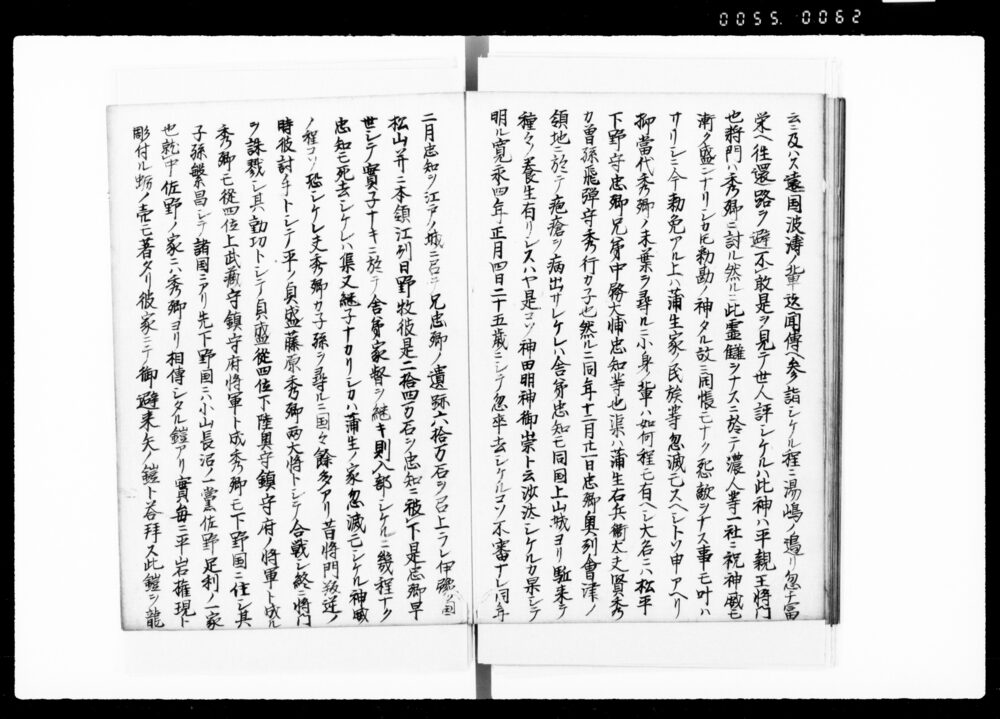 0055.0062
云ニ及ハス遠国波濤ノ輩迄聞傳ヘ参詣シケル程ニ湯嶋ノ邉リ忽チ富
栄ヘ往還路ヲ避不敢是ヲ見テ世人評シケルハ此神ハ平親王将門
也将門ハ秀郷ニ討ル然ルニ此霊ヲナスニ於テ濃人等一社ニ祝神威モ
漸ク盛ンナリシカ𪜈勅勘ノ神タル故ニ開帳モナク怨敵ヲナス事モ叶ハ
サリシニ今勅免アル上ハ蒲生家ノ民族等忽滅亡スヘシトソ申アヘリ
抑當代秀郷ノ末葉ヲ尋ルニ小身ノ輩ハ如何程モ有ヘシ大名ニハ松平
下野守忠郷兄弟中務大輔忠知等也渠ハ蒲生右兵衛太夫賢秀
カ曽孫飛弾守秀行カ子也然ルニ同年十二月廿一日忠郷奥列會津ノ
領地ニ於テ疱瘡ヲ病出サレケレハ舎弟忠知モ同国上山城ヨリ駈来ラ
種々ノ養生有リシスハヤ是コソ神田明神御崇ト云汝汰シケルカ果シテ
明ル寛永四年正月四日二十五歳ニシテ忽卒去シケルコソ不審ナレ同年
二月忠知ヲ江戸ノ城ニ召テ兄忠郷ノ遺跡六拾万石ヲ召上ラレ伊豫ノ国
松山并ニ本領江列日野牧彼是二拾四万石ヲ忠知ニ被下是忠郷早
世シテ實子ナキニ於テ舎弟家督ヲ継キ則入部シケルニ幾程ナク
忠知モ死去シケレハ集又継子ナカリシカハ蒲生ノ家忽滅亡シケル神威
ノ程コソ恐シケレ夫秀郷カ子孫ヲ尋ルニ国々餘多アリ昔将門叛逆ノ
時彼討手トシテ平ノ貞盛藤原秀郷両大将トシテ合戦シ終ニ将門
ヲ誅戮シ其勲功トシテ貞盛従四位下陸奥守鎮守府ノ将軍ト成ル
秀郷モ従四位上武蔵守鎮守府将軍ト成秀郷モ下野国ニ住シ其
子孫繁昌シテ諸国ニアリ先下野国ニハ小山長沼ノ一黨佐野足利ノ一家
也就中佐野ノ家ニハ秀郷ヨリ相傳シタル鎧アリ實毎ニ平岩権現ト
彫付ル蛎ノ壱モ著タリ彼家ニテ御避来矢ノ鎧ト名拝ス此鎧ヲ龍